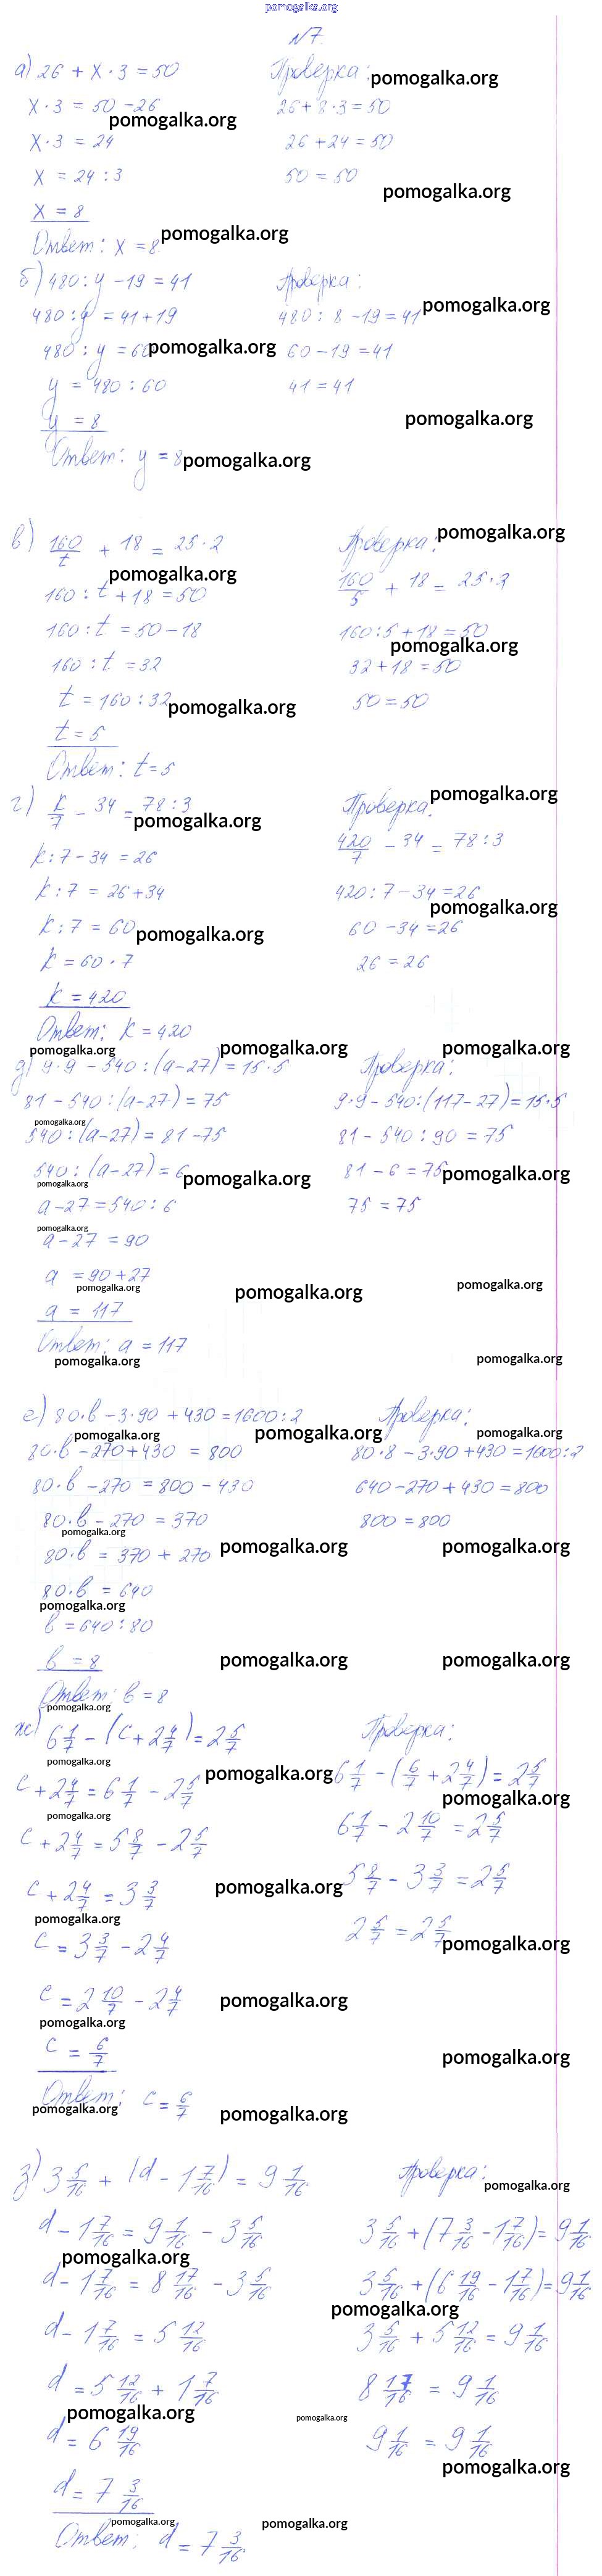 pomogalka.org
№7.
а) 26 + x · 3 = 50
x · 3 = 50 - 26
x · 3 = 24
x = 24 : 3
x = 8
Ответ: x = 8
Проверка:
26 + 8 · 3 = 50
26 + 24 = 50
50 = 50
б) 480 : y - 19 = 41
480 : y = 41 + 19
480 : y = 60
y = 480 : 60
y = 8
Ответ: y = 8
Проверка:
480 : 8 - 19 = 41
60 - 19 = 41
41 = 41
в) 160/t + 18 = 25 · 2
160 : t + 18 = 50
160 : t = 50 - 18
160 : t = 32
t = 160 : 32
t = 5
Ответ: t = 5
Проверка:
160/5 + 18 = 25 · 2
160 : 5 + 18 = 50
32 + 18 = 50
50 = 50
г) k/7 - 34 = 78 : 3
k : 7 - 34 = 26
k : 7 = 26 + 34
k : 7 = 60
k = 60 · 7
k = 420
Ответ: k = 420
Проверка.
420/7 - 34 = 78 : 3
420 : 7 - 34 = 26
60 - 34 = 26
26 = 26
д) 9 · 9 - 540 : (a - 27) = 15 · 5
81 - 540 : (a - 27) = 75
540 : (a - 27) = 81 - 75
540 : (a - 27) = 6
a - 27 = 540 : 6
a - 27 = 90
a = 90 + 27
a = 117
Ответ: a = 117
Проверка:
9 · 9 - 540 : (117 - 27) = 15 · 5
81 - 540 : 90 = 75
81 - 6 = 75
75 = 75
е) 80 · b - 3 · 90 + 430 = 1600 : 2
80 · b - 270 + 430 = 800
80 · b - 270 = 800 - 430
80 · b - 270 = 370
80 · b = 370 + 270
80 · b = 640
b = 640 : 80
b = 8
Ответ: b = 8
Проверка:
80 · 8 - 3 · 90 + 430 = 1600 : 2
640 - 270 + 430 = 800
800 = 800
ж) 6 1/7 - (c + 2 4/7) = 2 5/7
c + 2 4/7 = 6 1/7 - 2 5/7
c + 2 4/7 = 5 8/7 - 2 5/7
c + 2 4/7 = 3 3/7
c = 3 3/7 - 2 4/7
c = 2 10/7 - 2 4/7
c = 6/7
Ответ: c = 6/7
Проверка:
6 1/7 - (6/7 + 2 4/7) = 2 5/7
6 1/7 - 2 10/7 = 2 5/7
5 8/7 - 3 3/7 = 2 5/7
2 5/7 = 2 5/7
з) 3 5/16 + (d - 1 7/16) = 9 1/16
d - 1 7/16 = 9 1/16 - 3 5/16
d - 1 7/16 = 8 17/16 - 3 5/16
d - 1 7/16 = 5 12/16
d = 5 12/16 + 1 7/16
d = 6 19/16
d = 7 3/16
Ответ: d = 7 3/16
Проверка:
3 5/16 + (7 3/16 - 1 7/16) = 9 1/16
3 5/16 + (6 19/16 - 1 7/16) = 9 1/16
3 5/16 + 5 12/16 = 9 1/16
8 17/16 = 9 1/16
9 1/16 = 9 1/16